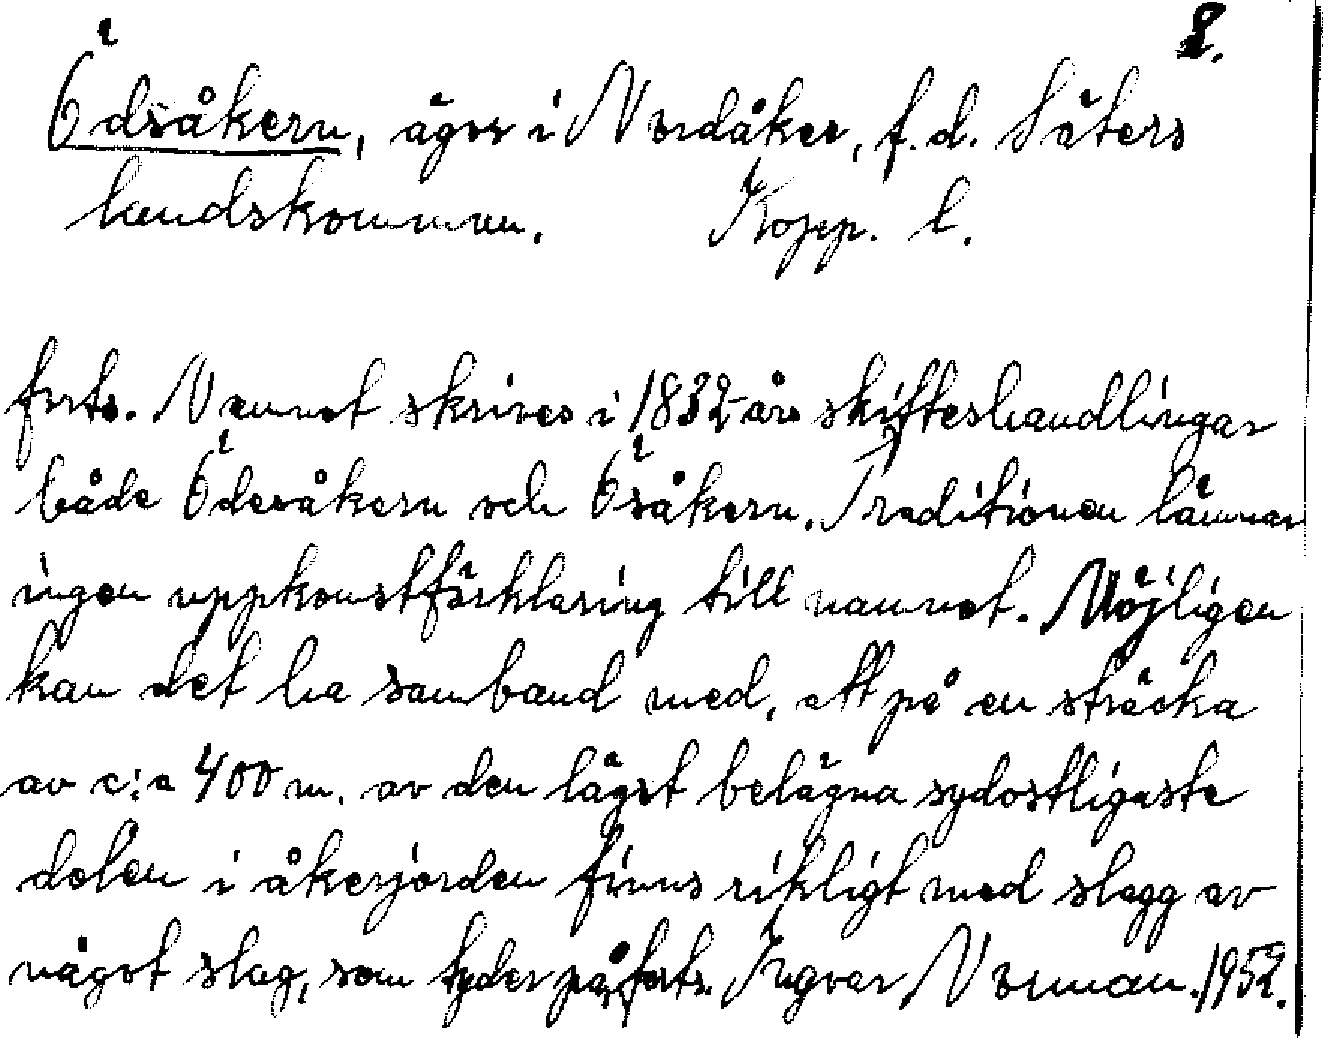 2.
Ödsåkern, ägor i Nordåker, f.d. Säters
landskommun. Kopp. l.
forts. Namnet skrives i 1832 års skifteshandlingar
både Ödesåkern och Ösåkern. Traditionen lämnar
ingen uppkomstförklaring till namnet. Möjligen
kan det ha samband med, att på en sträcka
av c:a 400 m. av den lägst belägna sydostligaste
delen i åkerjorden finns rikligt med slagg av
något slag, som tyder på, forts. Ingvar Norman. 1952.